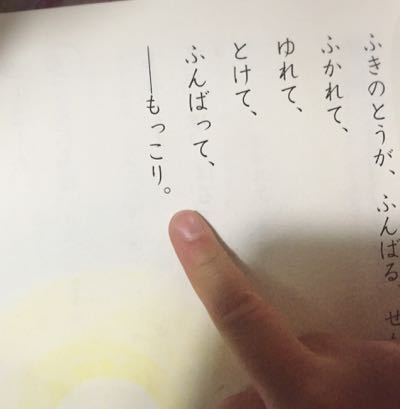 ふきのとうが、ふんばる。
ふかれて、
ゆれて、
とけて、
ふんばって、
――もっこり。